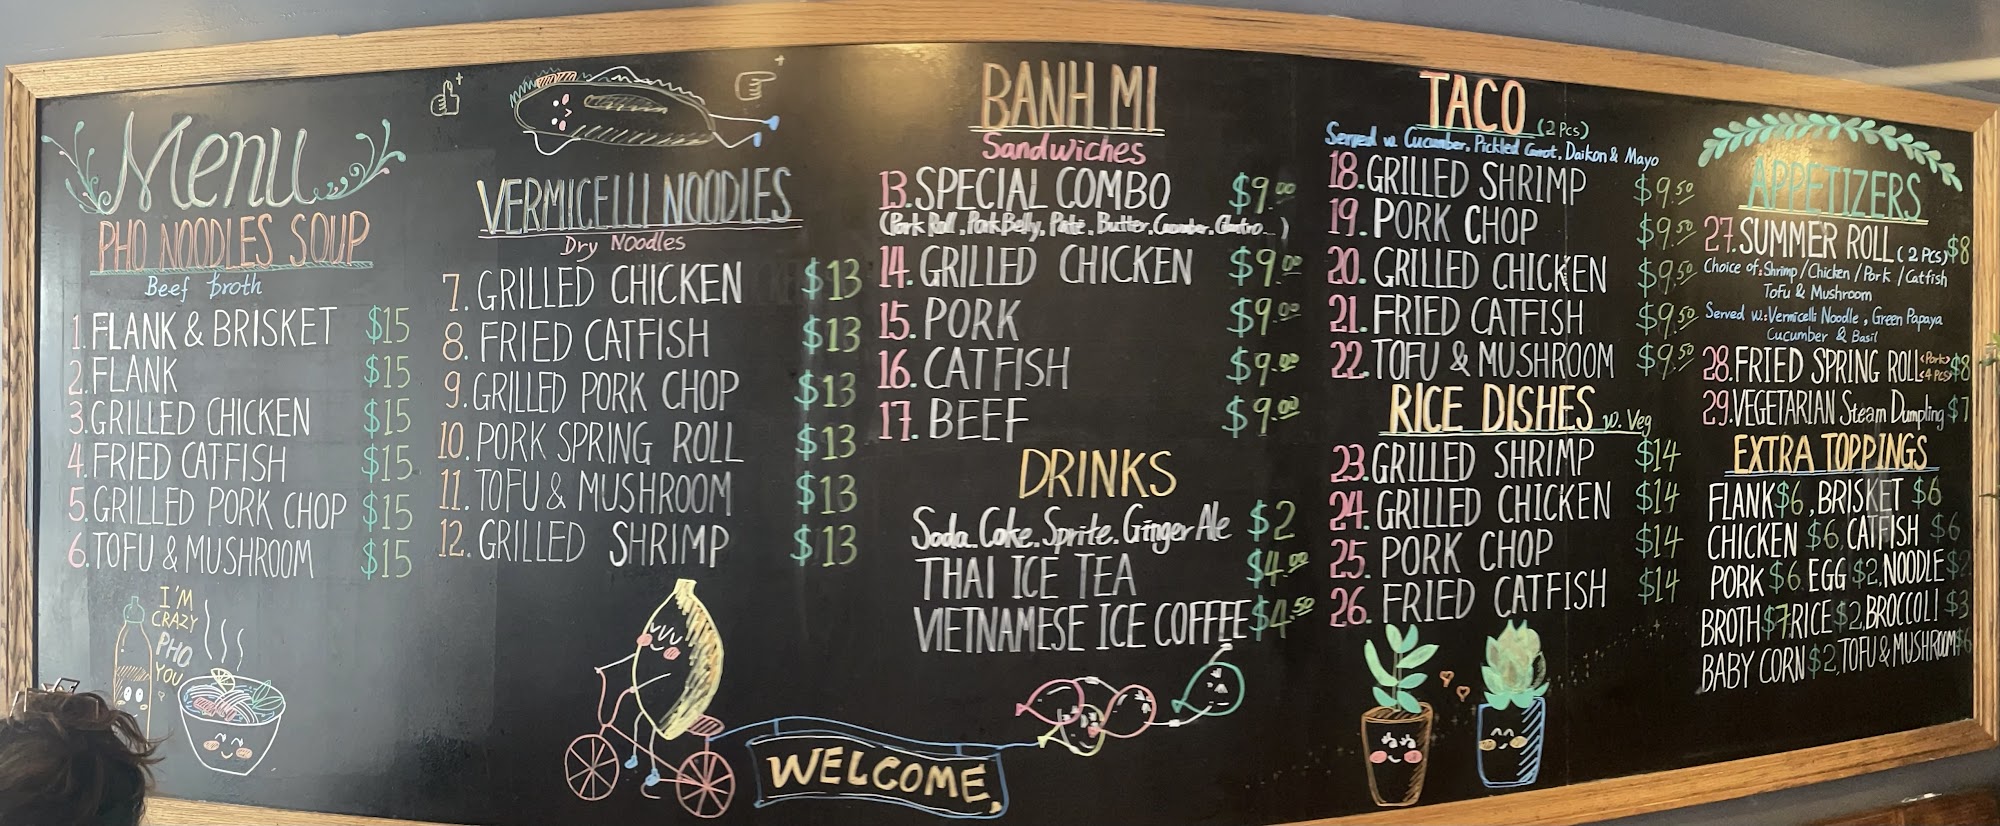 Menu
PHO NOODLES SOUP
Beef broth
1. FLANK & BRISKET $15
2. FLANK $15
3. GRILLED CHICKEN $15
4. FRIED CATFISH $15
5. GRILLED PORK CHOP $15
6. TOFU & MUSHROOM $15
I'M
CRAZY
PHO
YOU
VERMICELLI NOODLES
Dry Noodles
7. GRILLED CHICKEN $13
8. FRIED CATFISH $13
9. GRILLED PORK CHOP $13
10. PORK SPRING ROLL $13
11. TOFU & MUSHROOM $13
12. GRILLED SHRIMP $13
WELCOME
BANH MI
Sandwiches
13. SPECIAL COMBO $9.00
(Pork Roll, Pork Belly, Pate, Butter, Cucumber, Cilantro...)
14. GRILLED CHICKEN $9.00
15. PORK $9.00
16. CATFISH $9.00
17. BEEF $9.00
DRINKS
Soda. Coke. Sprite. Ginger Ale $2
THAI ICE TEA $4.00
VIETNAMESE ICE COFFEE $4.50
TACO (2 Pcs)
Served w. Cucumber, Pickled Carrot, Daikon & Mayo
18. GRILLED SHRIMP $9.50
19. PORK CHOP $9.50
20. GRILLED CHICKEN $9.50
21. FRIED CATFISH $9.50
22. TOFU & MUSHROOM $9.50
RICE DISHES w. Veg
23. GRILLED SHRIMP $14
24. GRILLED CHICKEN $14
25. PORK CHOP $14
26. FRIED CATFISH $14
APPETIZERS
27. SUMMER ROLL (2 Pcs) $8
Choice of: Shrimp / Chicken / Pork / Catfish
Tofu & Mushroom
Served w: Vermicelli Noodle, Green Papaya
Cucumber & Basil
28. FRIED SPRING ROLL <Pork> <4 Pcs> $8
29. VEGETARIAN Steam Dumpling $7
EXTRA TOPPINGS
FLANK $6, BRISKET $6
CHICKEN $6, CATFISH $6
PORK $6, EGG $2, NOODLE $2
BROTH $7 RICE $2, BROCCOLI $3
BABY CORN $2, TOFU & MUSHROOM $6